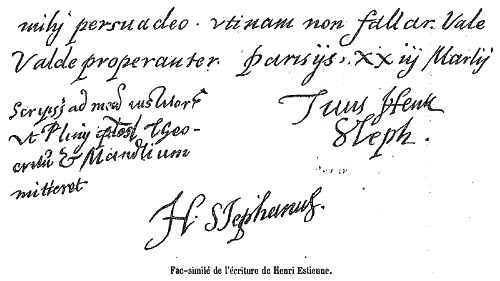 mihj persuadeo. vtinam non fallar. Vale
Valde properanter. Parisijs. XX iij Martij
Scripsj ad
Tuus Henr.
Steph.
vt Plinij Theo-
critū & Manilium
mitteret
H. Stephanus.
Fac-similé de l'écriture de Henri Estienne.